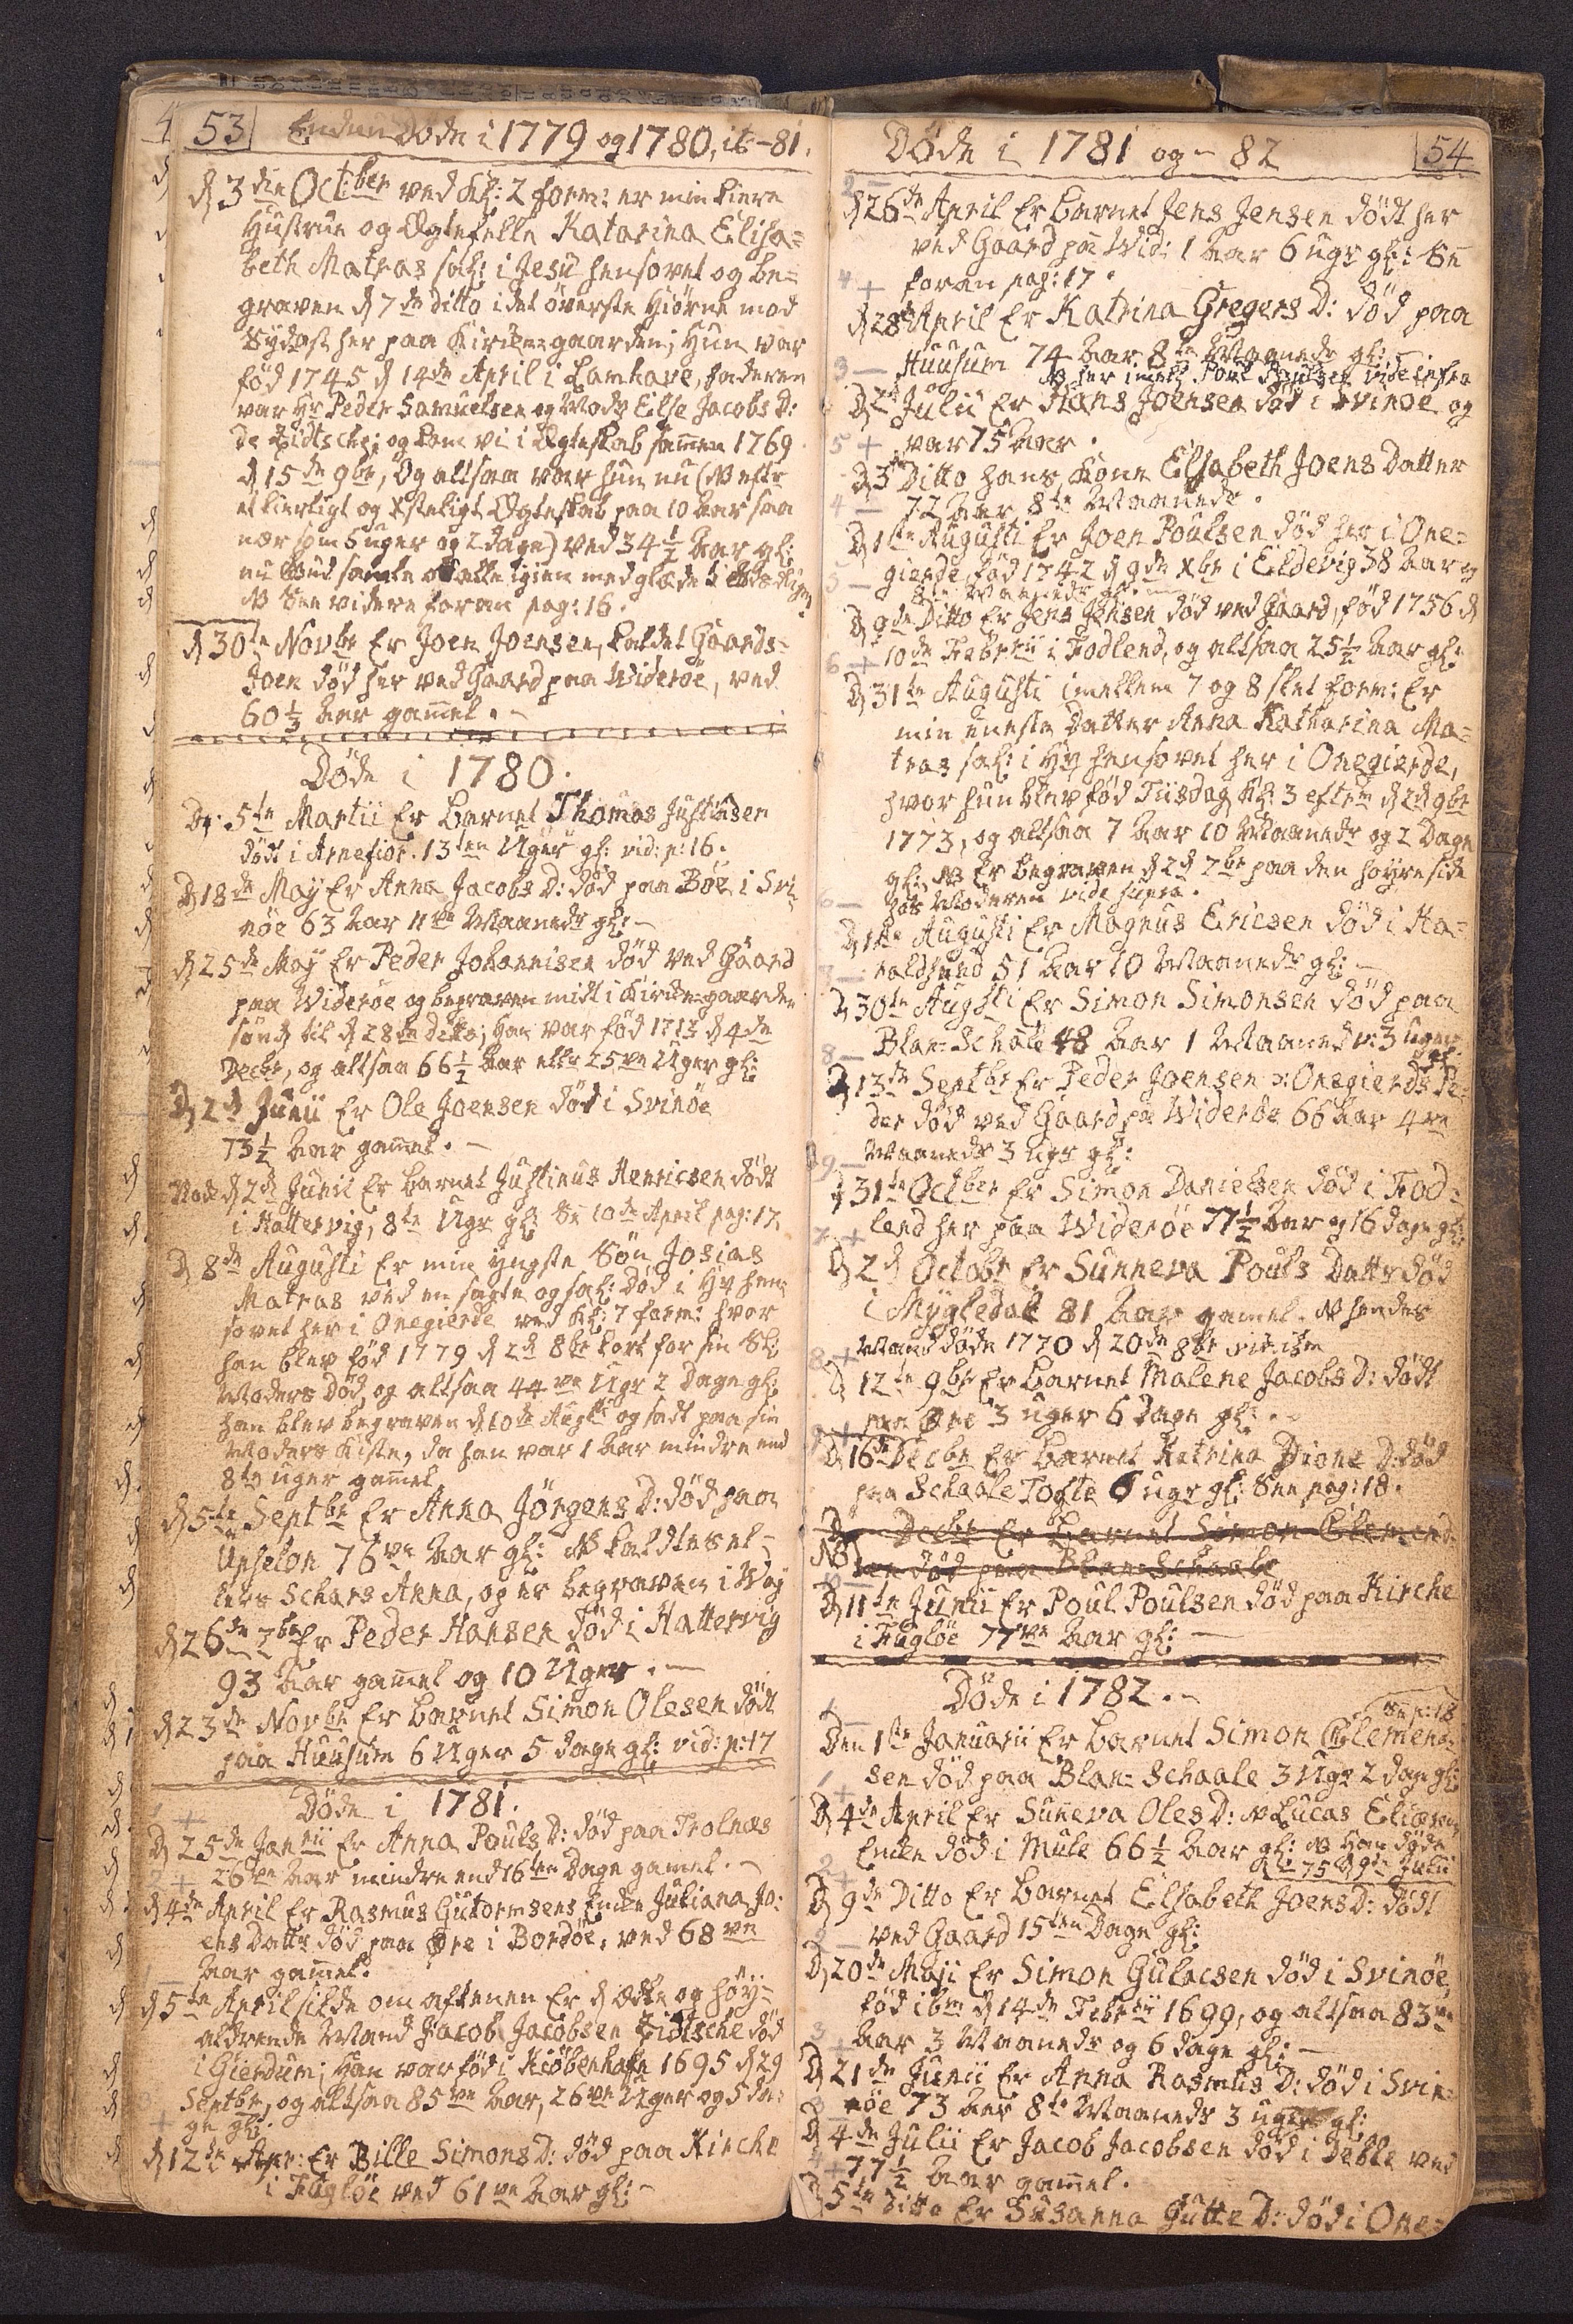 53 Enden Døde i 1779 og 1780, it -81.
D 3die Octber ved Kl: 2 form: er min kiere
Hustrue og Ægtefelle Katarina Elisa=
beth Matras sal: i Jesu hensovet og be=
graven d 7de ditto i det överste Hiörne mod
Sydost her paa Kirke=gaarden; Hun var
föd 1745 d 14de April i Lamhave, faderen
var Hr Peder Samuelsen og Modr Else Jacobs D:
de Zidtsche; og kom vi i Ægteskab sammen 1769
d 15de 9br, Og altsaa var hun nu (NB efter
et kierligt og Xsteligt Ægteskab paa 10 Aar saa
nær som 5 uger og 2 dage) ved 34½ Aar gl:
nu Gud samle os alle igien med glæde i
NB See videre foran pag: 16.
D 30te Novbr Er Joen Joensen, kaldet Gaards=
Joen död her ved Gaard paa Wideröe, ved
60⅓ Aar gamel.
Döde i 1780.
D. 5te Martii Er Barnet Thomas Justinsen
dödt i Arnefior. 13ten Uger gl: vid: p: 16.
D 18de May Er Anna Jacobs D: död paa Böe i Svi=
nöe 63 Aar 11ve Maanedr gl:
D 25de May Er Peder Johannisen död ved Gaard
paa Wideröe og begraven midt i Kirke=gaarden
sönd til d 28de ditto; Han var föd 1713 d 4de
Decbr, og altsaa 66½ Aar eller 25ve Uger gl:
D 2d Junii Er Ole Joensen död i Svinöe
73½ Aar gamel.
d 2d Junii Er Barnet Justinus Henricsen dödt
i Hattervig, 8te Ugr gl: Se 10de April pag: 17.
D 8de Augusti Er min yngste Sön Josias
Matras ved en sagte og sal: död i Hr hen=
sovet her i Onegierde ved Kl: 7 form: hvor
han blev föd 1779 d 2d 8br kort for sin Sl:
Moders Död, og altsaa 44ve Ugr 2 Dage gl:
han blev begraven d 10de Augti og sadt paa sin
Moders Kiste, da han var 1 Aar mindre end
8te uger gamel.
D 5te Septbr Er Anna Jörgens D: död paa
Upselon 76ve Aar gl: NB kaldtes el=
lers Schars Anna, og er begraven i Waÿ
D 26de 7br Er Peder Hansen död i Hattervig
93 Aar gamel og 10 Uger.
D 23de Novbr Er Barnet Simon Olesen dödt
paa Huusum 6 Uger 5 dage gl: vid: p: 17
Döde i 1781.
D 25de Janrii Er Anna Pouls D: död paa Trolnæs
26ve Aar mindre end 16ten Dage gamel.
D 4de April Er Rasmus Gutormsens Enke Juliana Jo=
ens Dattr död paa Öre i Bordöe, ved 68ve
Aar gamel.
D 5te April silde om aftenen Er d ædle og höy=
aldrende Mand Jacob Jacobsen Zidtsche död
i Gierdum; Han var föd i Kiöbenhafn 1695 d 29
Septbr, og altsaa 85ve Aar, 26ve Uger og 5 da=
ge gl:
D 12te Apr: Er Bille Simons D: död paa Kirche
i Fuglöe ved 61ve Aar gl:
Döde i 1781 og - 82 54
D 26de April Er Barnet Jens Jensen dödt her
ved Gaard paa Wid: 1 Aar 6 ugr gl: Se
foran pag: 17.
D 28de April Er Katrina Gregers D: död paa
Huusum 74 Aar 8te Maanedr gl:
NB her imell: Poul Poulsen vide infra
D 2d Julii Er Hans Joensen död i Svinöe og
var 75 Aar.
D 3d Ditto hans Kone Elsabeth Joens Datter
72 Aar 8te Maanedr.
D 1te Augusti Er Joen Poulsen död her i One=
gierde, föd 1742 d 9de Xbr i Eldevig 38 Aar og
8te Maanedr gl:
D 9de Ditto Er Jens Jensen död ved Gaard, föd 1756 d
10de Febrii i Fodlend, og altsaa 25½ Aar gl:
D 31te Augusti imellem 7 og 8 slet form: Er
min eneste Datter Anna Katharina Ma=
tras sal: i Hr hensovet her i Onegierde,
hvor hun blev föd Tiisdag Kl: 3 efterm d 2d 9br
1773, og altsaa 7 Aar 10 Maanedr og 2 Dage
gl: NB Er begraven d 2d 7br paa den höyre side
hos Moderen vide supra.
D 1te Augusti Er Magnus Ericsen död i Ha=
raldsund 51 Aar 10 Maanedr gl:
D 30te Augsti Er Simon Simonsen död paa
Blan=Schale 48 Aar 1 Maaned 3 uger
gl:
D 13de Septbr Er Peder Joensen ɔ: Onegierds Pe=
der död ved Gaard paa Wideröe 66 Aar 4re
Maanedr 3 ugr gl:
D 31te Octber Er Simon Danielsen död i Fod=
lend her paa Wideröe 77½ Aar og 16 dage gl:
D 2d Octobr Er Sunneva Pouls Dattr död
i Mÿgledal 81 Aar gamel. NB hendes
Mand döde 1770 d 20de 8br
D 12te 9br Er Barnet Malene Jacobs D: dödt
paa Öre 3 uger 6 Dage gl:
D 16de Decbr Er Barnet Katrina Dione D: död
paa Schaale Tofte 6 ugr gl: See pag: 18.
D Decbr Er Barnet Simon Clemend
NB sen död paa Blan=Schaale
D 11te Junii Er Poul Poulsen död paa Kirche
i Fuglöe 77ve Aar gl:
Döde i 1782.
Se p: 18
Den 1te Januarii Er Barnet Simon Clemend=
sen död paa Blan=Schaale 3 Ugr 2 dage gl:
D 4de April Er Sunneva Oles D: NB Lucas Eliæsens
Enke död i Mule 66½ Aar gl: NB Han döde
75 d 9de Julii
D 9de Ditto Er Barnet Elsabeth Joens D: dödt
ved Gaard 15ten Dage gl:
D 20de Maji Er Simon Gulacsen död i Svinöe,
föd ibm d 14de Febrii 1699, og altsaa 83ve
Aar 3 Maanedr og 6 dage gl:
D 21de Junii Er Anna Rasmus D: död i Svi=
nöe 73 Aar 8te Maanedr 3 uger gl:
D 4de Julii Er Jacob Jacobsen död i Deble ved
77½ Aar gamel.
D 5te Ditto Er Susanna Gutte D: död i One=